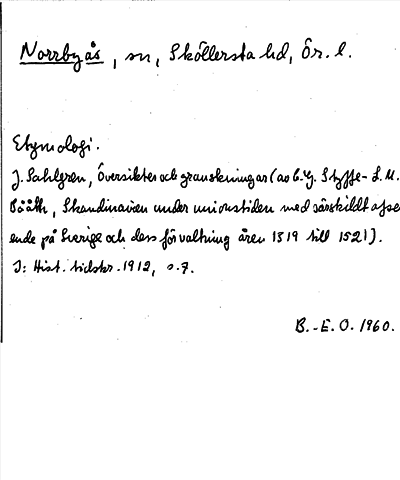 Norrbyås, sn, Sköllersta hd, Ör. l.
Etymologi.
J. Sahlgren, Översikter och granskningar (av C.G. Styffe - L.M.
Bååth, Skandinavien under unionstiden med särskildt afse-
ende på Sverige och dess förvaltning åren 1319 till 1521).
I: Hist. tidskr. 1912, s. 7.
B.-E. O. 1960.